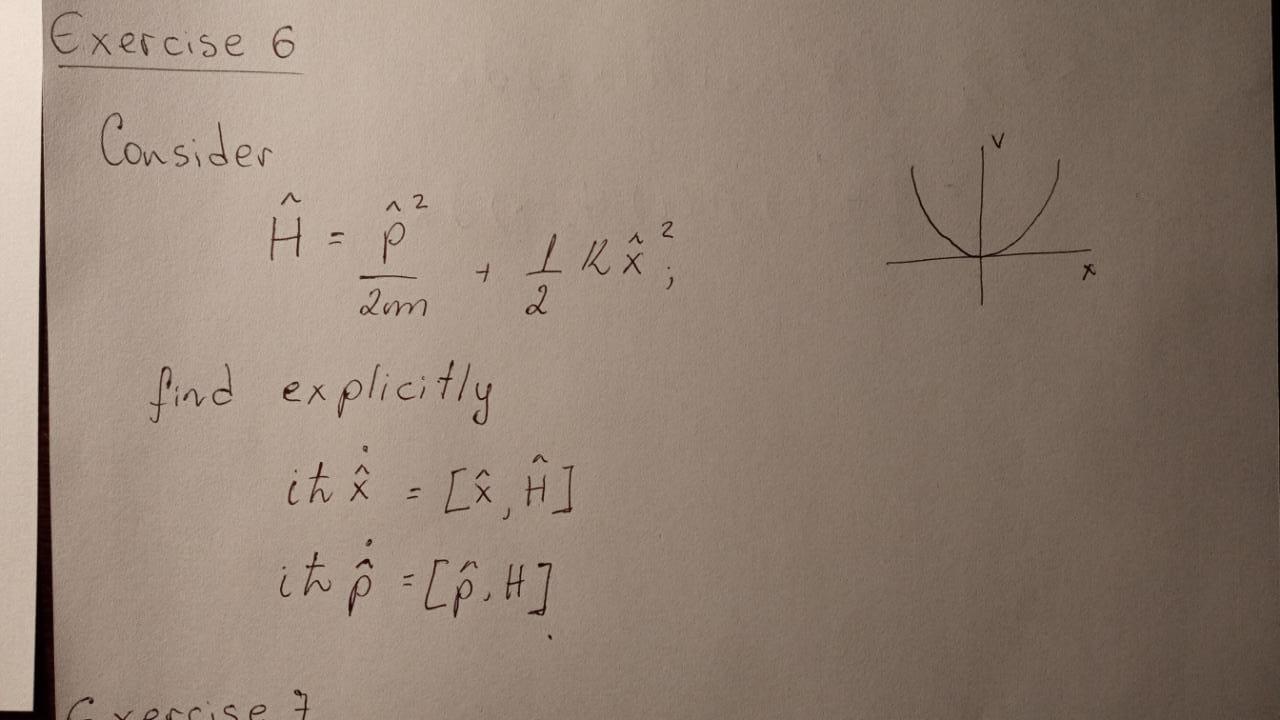 Exercise 6
Consider
Ĥ = p̂² / 2m + 1/2 k x̂² ;
V
x
find explicitly
iħ x̂̇ = [x̂, Ĥ]
iħ p̂̇ = [p̂, H].
Exercise 7